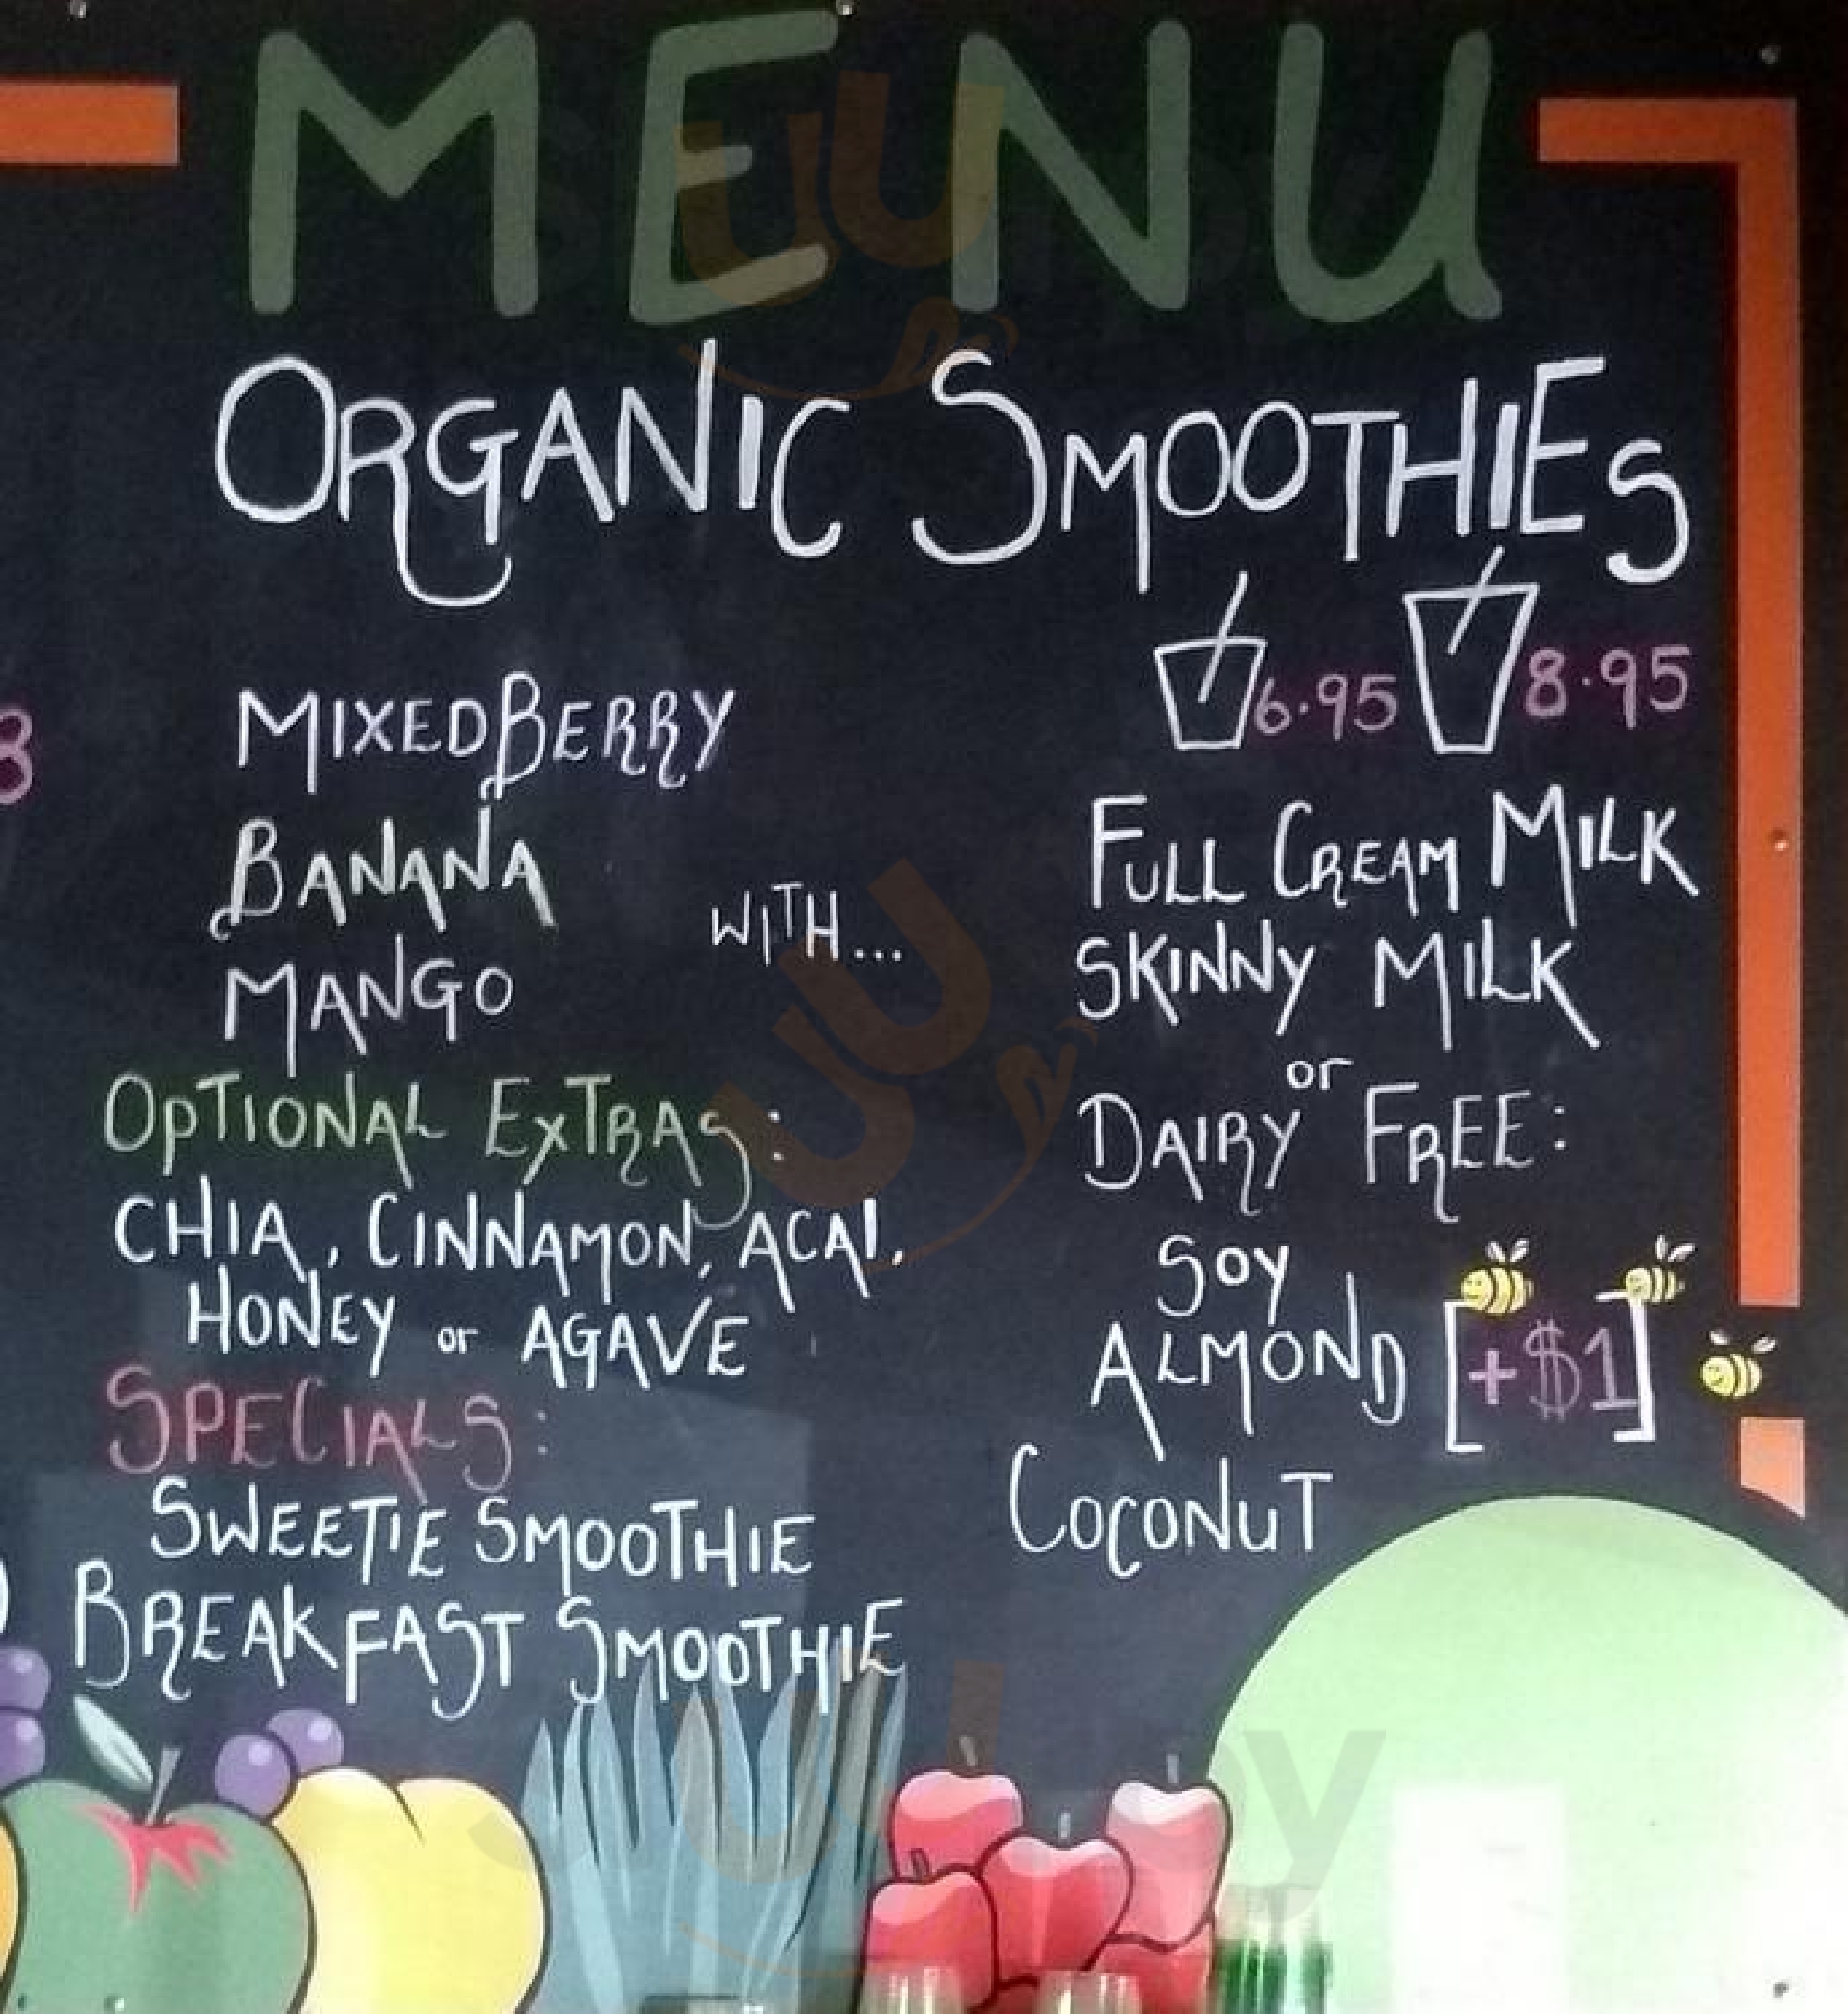 MENU
ORGANIC SMOOTHIES
6.95 8.95
MIXED BERRY
BANANA
MANGO
WITH...
FULL CREAM MILK
SKINNY MILK
or
DAIRY FREE:
SOY
ALMOND [+$1]
COCONUT
OPTIONAL EXTRAS:
CHIA, CINNAMON, ACAI,
HONEY or AGAVE
SPECIALS:
SWEETIE SMOOTHIE
BREAKFAST SMOOTHIE